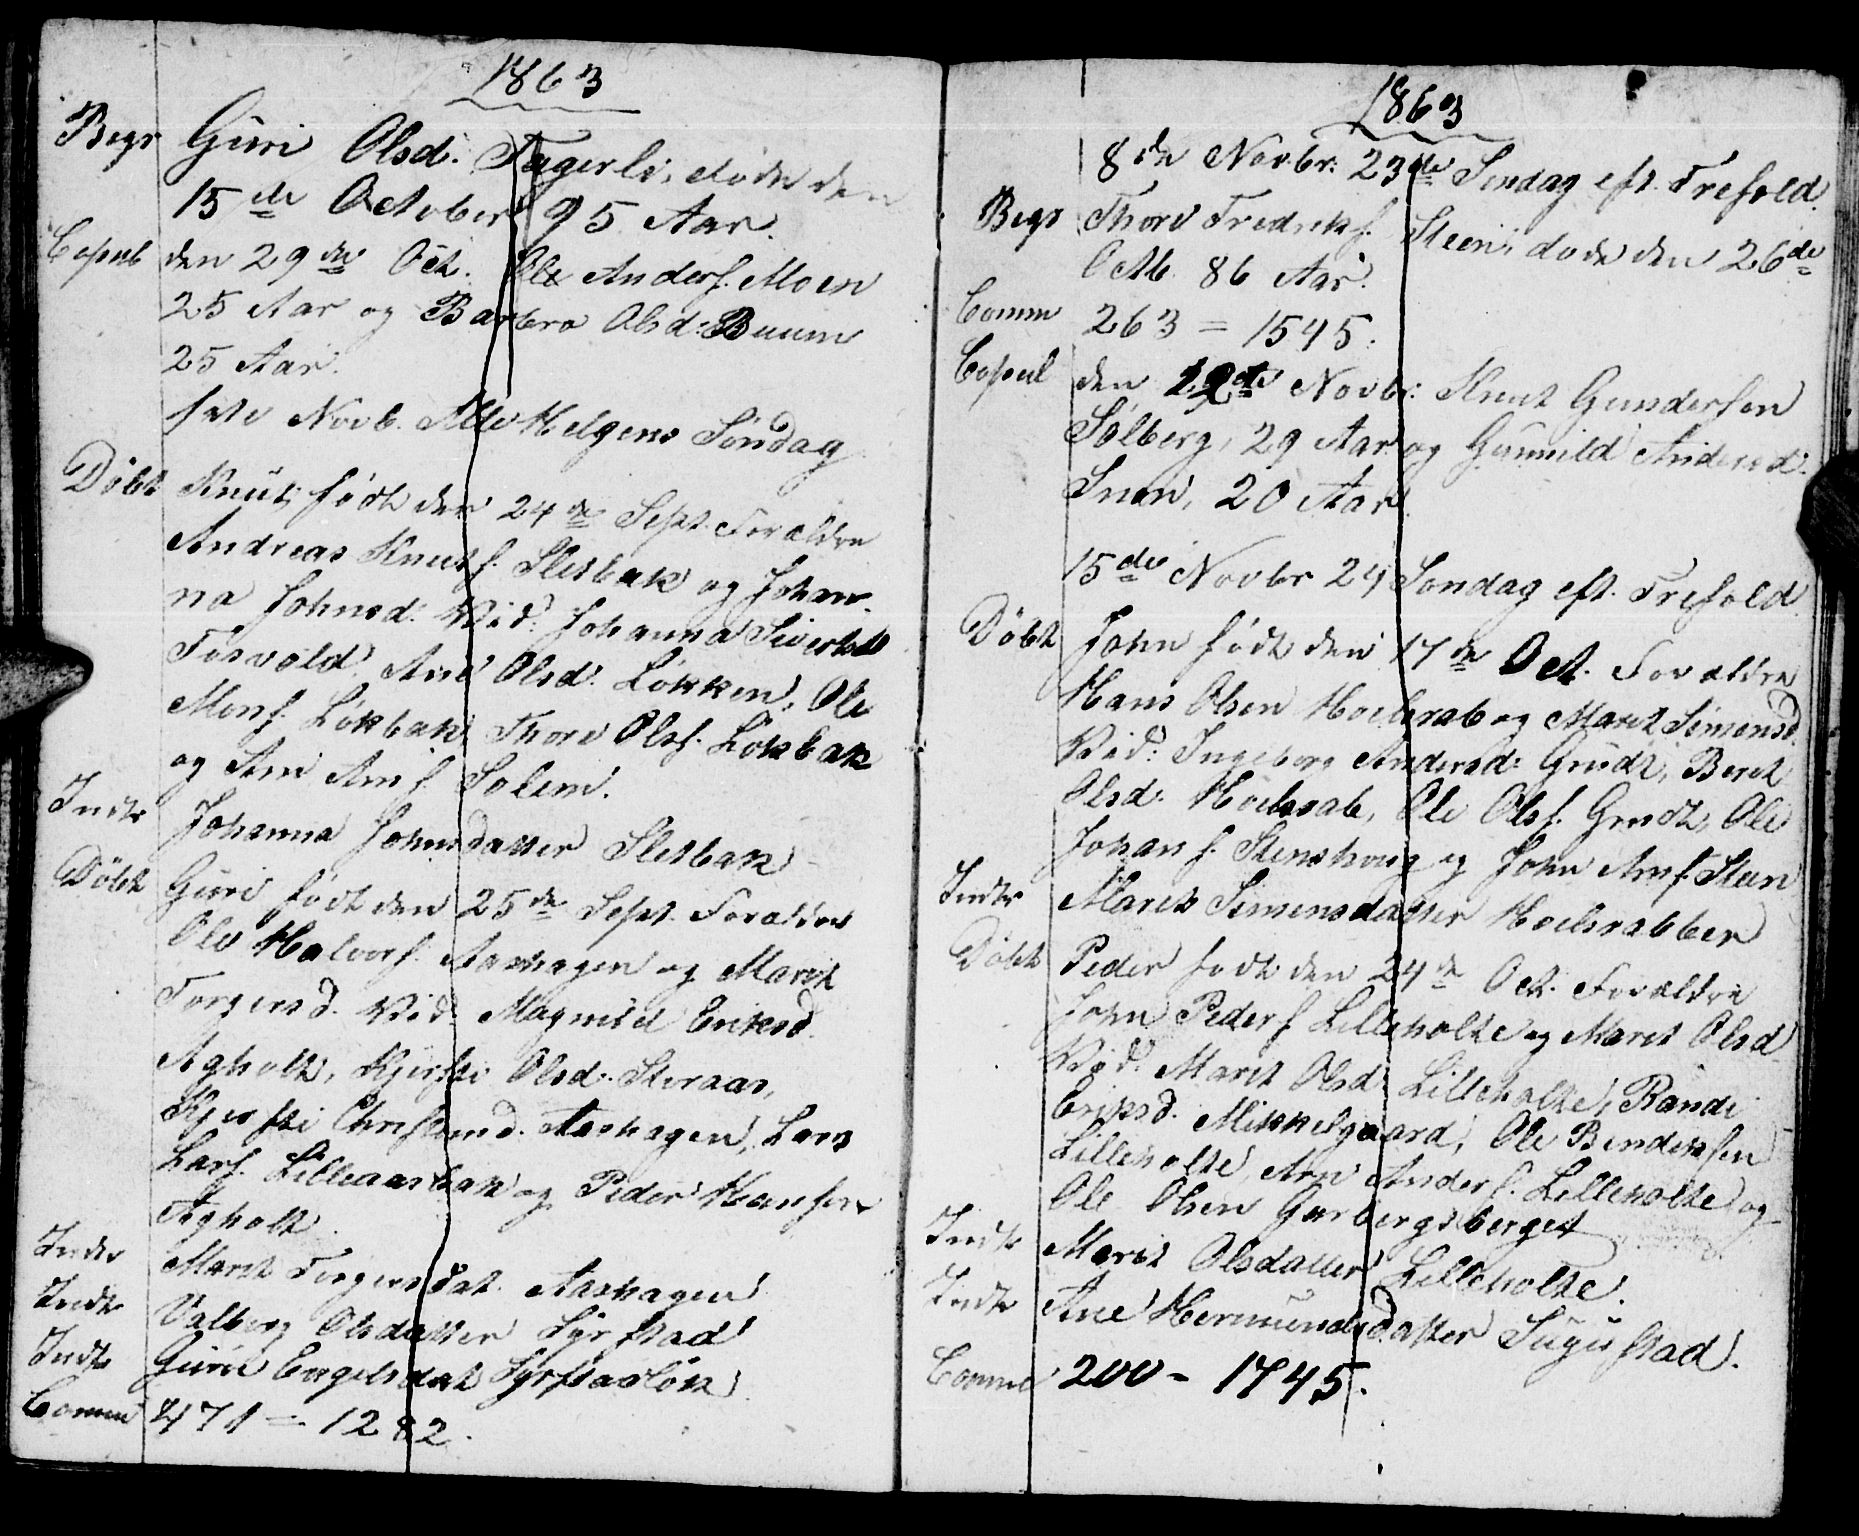 1863
Begr Guri Olsd. Fagerli, døde den
15de October 95 Aar.
Copul den 29de Oct. Ole Anders. Moen
25 Aar og Barbro Olsd. Buum
25 Aar.
1ste Novb. Alle Helgens Søndag
Døbt Knut, født den 24de Sept. Forældre
Andreas Knuts. Sletbak og Johan-
na Johnsd. Vid. Johanna Sivertsd
Fosvold, Ane Olsd. Løkken, Ole
Mons. Løkbak, Thore Olss. Løkbak
og Arn Arns. Solem.
Indt Johanna Johnsdatter Sletbak
Døbt Guri født den 25de Sept. Forældre
Ole Halvors. Aashagen og Marit
Torgersd. Vid. Magnild Eriksd.
Agholt, Kjersti Olsd. Storaas,
Kjersti Christensd. Aashagen, Lars
Lars. Lilleaasbak og Peder Hansen
Agholt.
Indt Marit Torgersdat. Aashagen
Indt Valborg Olsdatter Syrstad
Indt Guru Engelsdat Syrstadløk
Comm 471 = 1282.
1863
8de Novbr. 23de Søndag eft. Trefold.
Begr Thore Fredriks. Steen, døde den 26de
Octb. 86 Aar.
Comm 263 = 1545.
Copul den 12te Novbr. Knut Gundersen
Solberg, 29 Aar og Gunnild Andersd.
Snoen, 20 Aar
15de Novbr 24 Søndag eft. Trefold
Døbt John født den 17de Oct. Forældre
Hans Olsen Hoelsrab og Marit Simensd.
Vid. Ingeborg Andersd. Grudt, Beret
Olsd. Hoelsrab, Ole Olss. Grudt, Ole
Johans. Stenshoug og John Arns. Steen
Indt Marit Simensdatter Hoelsrabben
Døbt Peder født den 24de Oct. Forældre
John Peders Lilleholte og Marit Olsd
Vid. Marit Olsd Lilleholte, Randi
Eriksd. Mikkelgaard, Ole Bendiksen
Lilleholte, Arn Anders. Lilleholte og
Ole Olsen Garbergsberget
Indt Marit Olsdatter Lilleholte.
Indt Ane Hermundsdatter Sugustad.
Comm 200 - 1745.